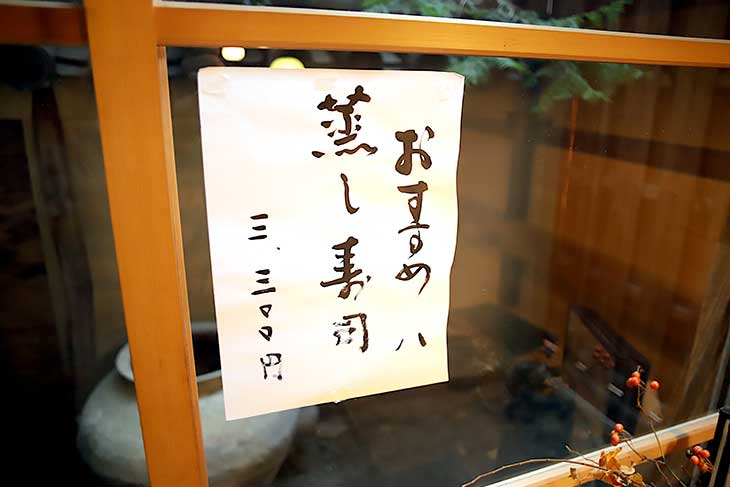 おすすめ八
蒸し寿司
三、三〇〇円